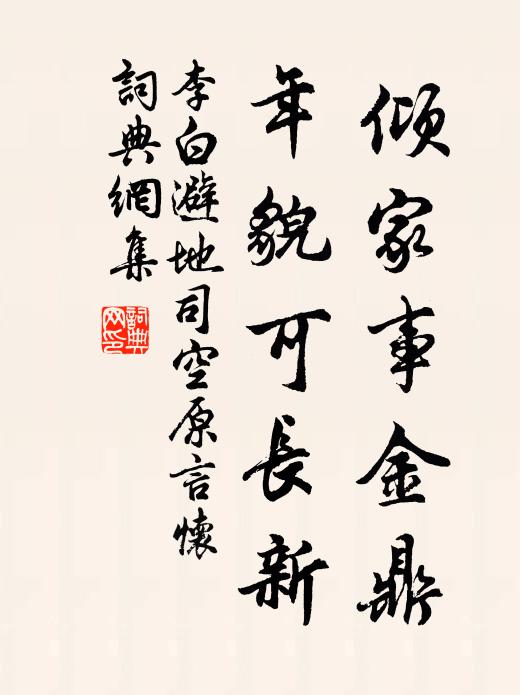 傾家事金鼎
年貌可長新
李白避地司空原言懷
詞典網集
詞典
网印